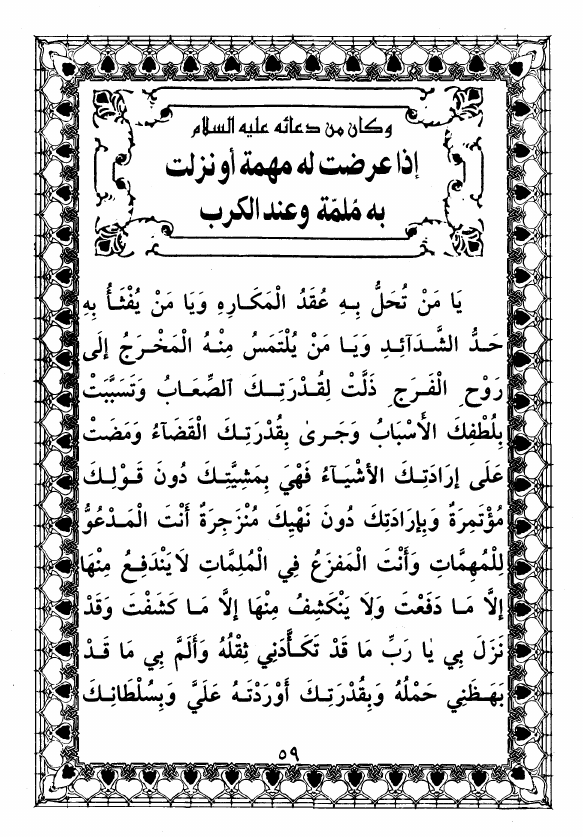 وكان من دعائه عليه السلام
إذا عرضت له مهمة أو نزلت
به مُلمّة وعند الكرب
يَا مَنْ تُحَلُّ بِـهِ عُقَدُ الْمَكَـارِهِ وَيَا مَنْ يُفْثَـأُ بِهِ
حَـدُّ الشَّـدَآئِـدِ وَيَـا مَنْ يُلْتَمَسُ مِنْـهُ الْمَخْـرَجُ إلَى
رَوْحِ الْفَـرَجِ ذَلَّتْ لِقُـدْرَتِـكَ الصِّعَـابُ وَتَسَبَّبَتْ
بِلُطْفِكَ الأَسْبَابُ وَجَـرىٰ بِقُدْرَتِـكَ الْقَضَآءُ وَمَضَتْ
عَلَى إرَادَتِـكَ الأشْيَـآءُ فَهْيَ بِمَشِيَّتِـكَ دُونَ قَـوْلِـكَ
مُؤْتَمِرَةٌ وَبِإرَادَتِكَ دُونَ نَهْيِكَ مُنْزَجِرَةٌ أَنْتَ الْمَـدْعُوُّ
لِلْمُهِمَّاتِ وَأَنْتَ الْمَفزَعُ فِي الْمُلِمَّاتِ لاَ يَنْدَفِـعُ مِنْهَا
إلاَّ مَـا دَفَعْتَ وَلاَ يَنْكَشِفُ مِنْهَا إلاَّ مَـا كَشَفْتَ وَقَدْ
نَزَلَ بِي يٰا رَبِّ مَا قَدْ تَكَـأَّدَنِي ثِقْلُهُ وَأَلَمَّ بِي مَا قَـدْ
بَهَظَنِي حَمْلُهُ وَبِقُدْرَتِـكَ أَوْرَدْتَـهُ عَلَيَّ وَبِسُلْطَانِـكَ
٥٩